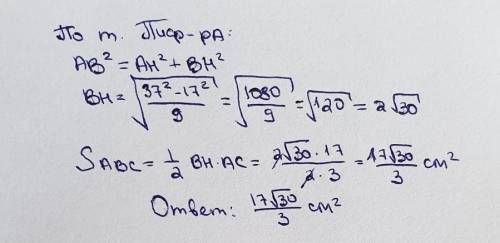 По т. Пиф-ра:
AB² = AH² + BH²
BH = √((37² - 17²)/9) = √(1080/9) = √120 = 2√30
S ABC = 1/2 BH · AC = (2√30 · 17)/(2 · 3) = 17√30/3 см²
Ответ: 17√30/3 см²